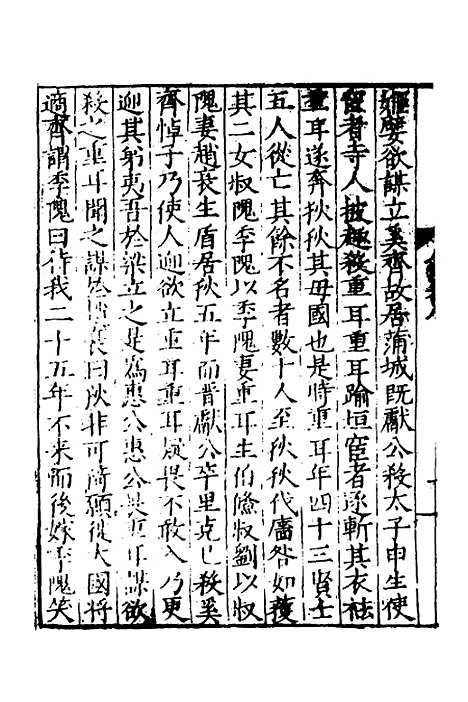 姬嬖欲謀立奚齊故居蒲城既獻公殺太子申生使
宦者寺人披趣殺重耳重耳踰垣宦者逐斬其衣袪
重耳遂奔狄狄其母國也是時重耳年四十三賢士
五人從亡其餘不名者數十人至狄狄伐廧咎如獲
其二女叔隗季隗以季隗妻重耳生伯儵叔劉以叔
隗妻趙衰生盾居狄五年而晉獻公卒里克已殺奚
齊悼子乃使人迎欲立重耳重耳疑畏不敢入乃更
迎其弟夷吾於梁立之是為惠公惠公畏重耳謀欲
殺之重耳聞之謀於趙衰曰狄非可適願從大國將
適齊謂季隗曰待我二十五年不來而後嫁季隗笑